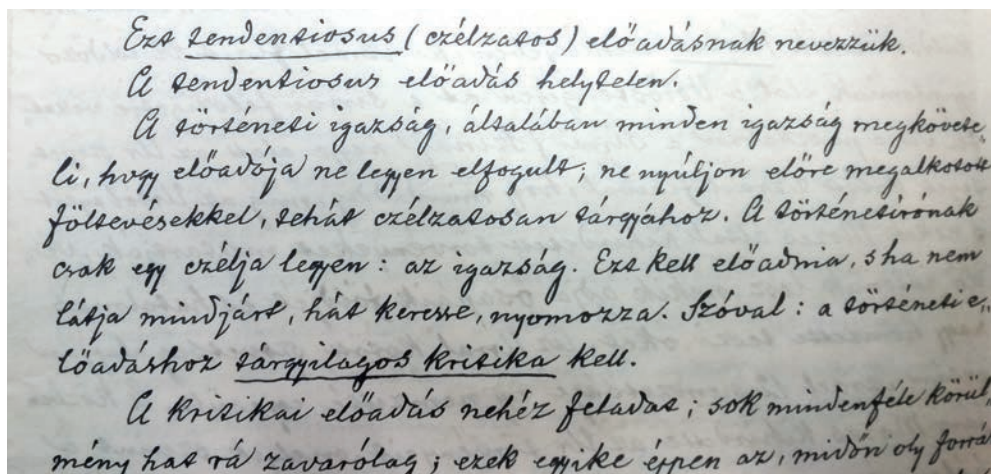 Ezt tendentiosus (czélzatos) előadásnak nevezzük.
A tendentiosus előadás helytelen.
A történeti igazság, általában minden igazság megkövete„
li, hogy előadója ne legyen elfogult; ne nyúljon előre megalkotott
föltevésekkel, tehát czélzatosan tárgyához. A történetirónak
csak egy czélja legyen: az igazság. Ezt kell előadnia, s ha nem
látja mindjárt, hát keresse, nyomozza. Szóval: a történeti e„
lőadáshoz tárgyilagos kritika kell.
A kritikai előadás nehéz feladat; sok mindenféle körül„
mény hat rá zavarólag; ezek egyike éppen az, midőn oly forrá